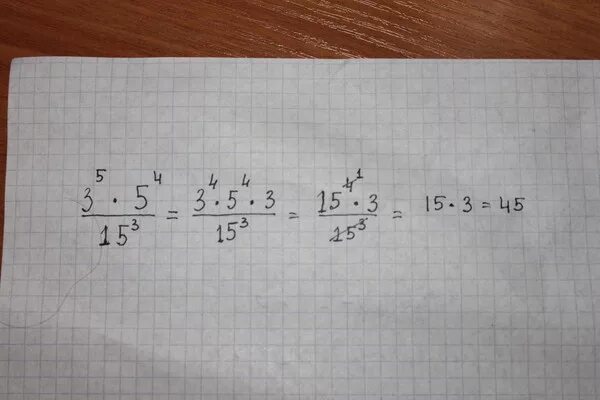 3⁵ · 5⁴ / 15³ = 3⁴ · 5⁴ · 3 / 15³ = 15⁴ ¹ · 3 / 15³ = 15 · 3 = 45